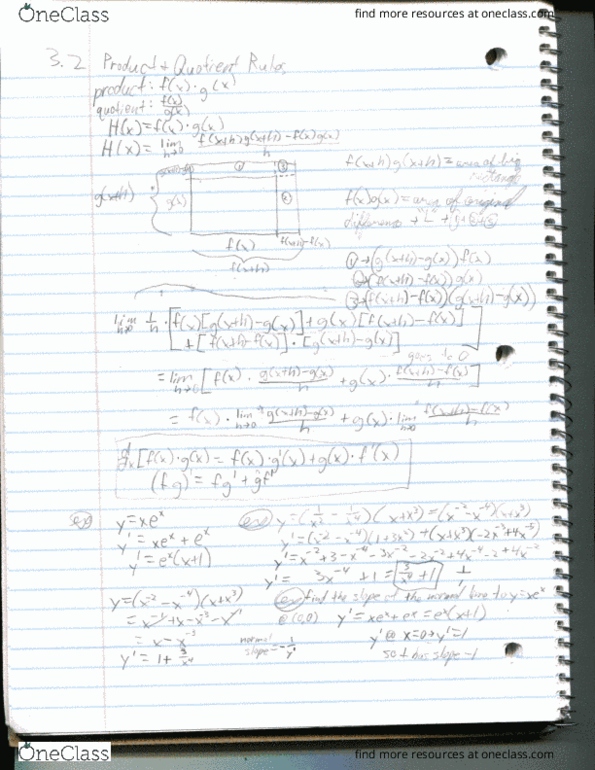 OneClass
find more resources at oneclass.com
3.2 Product & Quotient Rules
product: f(x)·g(x)
quotient: f(x)/g(x)
H(x)=f(x)·g(x)
H(x)= lim h→0 f(x+h)g(x+h)-f(x)g(x)/h
f(x+h)g(x+h)=area of big rectangle
g(x+h)
g(x)
①
③
②
f(x)g(x)=area of original
difference
f(x)
f(x+h)-f(x)
f(x+h)
①→(g(x+h)-g(x))f(x)
②→(f(x+h)-f(x))g(x)
③→(f(x+h)-f(x))(g(x+h)-g(x))
lim h→0 1/h ·[f(x)[g(x+h)-g(x)]+g(x)[f(x+h)-f(x)]
+[f(x+h)-f(x)]·[g(x+h)-g(x)]]
goes to 0
= lim h→0 [f(x)· g(x+h)-g(x)/h +g(x)· f(x+h)-f(x)/h]
= f(x)· lim h→0 g(x+h)-g(x)/h + g(x)· lim h→0 f(x+h)-f(x)/h
d/dx [f(x)·g(x) = f(x)·g'(x)+g(x)·f'(x)
(fg)=fg'+gf'
ex y=xe^x
y'=xe^x+e^x
y'=e^x(x+1)
ex y=(1/x^2 - 1/x^4)(x+x^3)=(x^-2-x^-4)(x+x^3)
y'=(x^-2-x^-4)(1+3x^2)+(x+x^3)(-2x^-3+4x^-5)
y'=x^-2+3-x^-4-3x^-2-2x^-2+4x^-4-2+4x^-2
y'= 3x^-4 +1 = 3/x^4 +1
y=(x^-2-x^-4)(x+x^3)
=x^-1+x-x^-3-x^-1
=x-x^-3
y'=1+ 3/x^4
ex find the slope of the normal line to y=xe^x
@(0,0) y'=xe^x+e^x=e^x(x+1)
normal slope=-1/y'
y'@ x=0→y'=1
so ⊥ has slope -1
OneClass
find more resources at oneclass.com